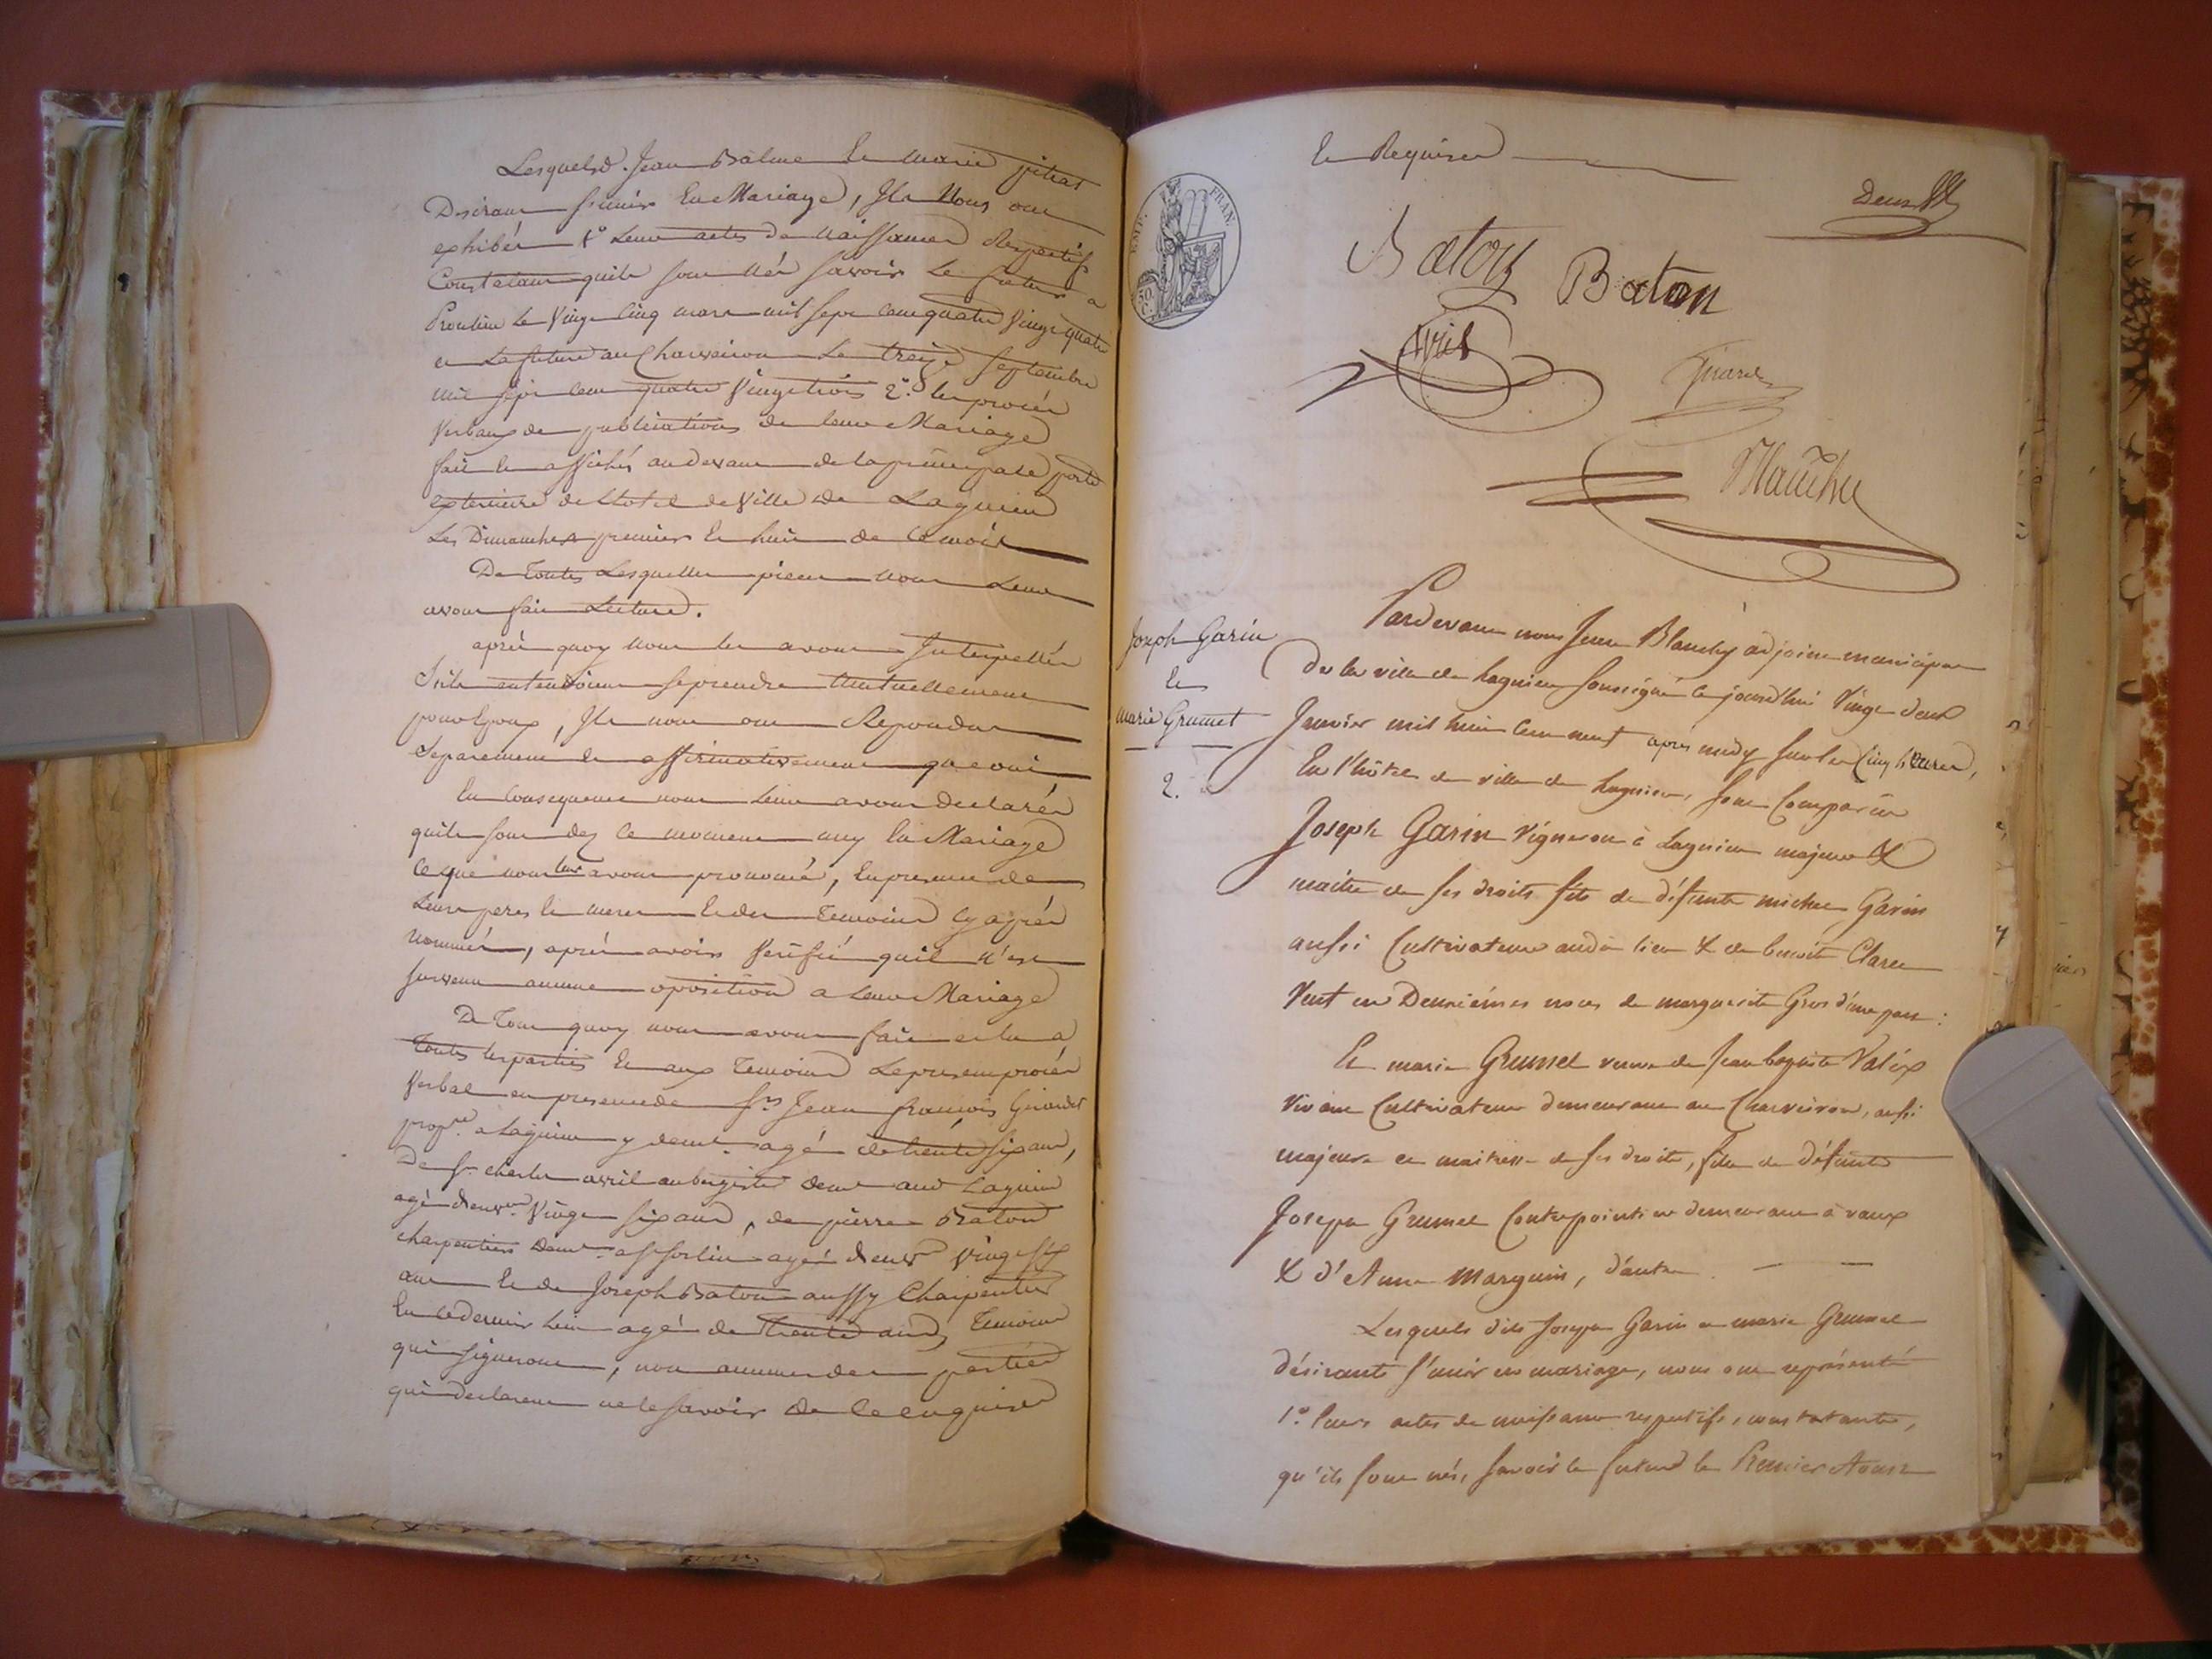 Lesquels d. Jean Balme et marie pitrat
Desirant s'unir En Mariage, Ils Nous ont
exhibés 1° Leurs actes de Naissances Respectifs
Constatant quils sont Nés savoir Le futur a
Proulieu le Vingt Cinq mars mil sept cent quatre Vingt quatre
et La future au Charveiron Le treize septembre
mil sept cent quatre Vingt trois 2° les procés
Verbaux de publications de leur Mariage
fait et affichés au devant de la principale porte
exterieure de l'hotel de Ville de Lagnieu
Les Dimanches premier et huit de ce mois
De Toutes Lesquelles pieces nous Leur
avons fait Lecture.
aprés quoy nous les avons Interpellés
S'ils entendoient se prendre Mutuellement
pour Epoux, Ils nous ont Repondu
Separement et affirmativement que oui
En Consequence nous Leur avons declarés
quils sont dez ce moment uny En Mariage
Ce que nous leur avons prononcé, En presence de
Leurs peres et meres et des Temoins Cy aprés
nommés, aprés avoir Verifié quil n'est
survenu aucune oposition a Leur Mariage
De Tout quoy nous avons fait et lu a
Toutes les parties et aux Temoins Le present procés
Verbal en presence de Srs Jean françois Girardet
propre a Lagnieu y demt agé de trente six ans,
De Sr charles avril aubergiste demt aud Lagnieu
agé d'envon Vingt six ans, de pierre Baton
charpentier demt a St Sorlin agé d'envon Vingt six
ans et de Joseph Baton aussy Charpentier
En ce dernier Lieu agé de Trente ans, Temoins
qui signeront, non aucune des parties
qui declarent ne le savoir de ce enquises
et Requises
Deux
Baton Baton
Avril
Girard
Blanchy
Joseph Garin
et
marie Grumet
2.
Pardevant nous Jean Blanchy adjoint municipal
De la ville de Lagnieu soussigné ce jourd'hui Vingt deux
Janvier mil huit cent neuf après midy sur les Cinq heures,
En l'hôtel de ville de Lagnieu, sont Comparus
Joseph Garin Vigneron à Lagnieu majeur &
maitre de ses droits fils de défunts michel Garin
aussi Cultivateur audit lieu & de benoite Claret
Veuf en Deuxiémes noces de marguerite Gros d'une part :
Et marie Grumet veuve de Jean baptiste Valix
Vivant Cultivateur demeurant au Charveiron, aussi
majeure et maitresse de ses droits, fille de défunts
Joseph Grumet Contrepointier demeurant à vaux
& d'Anne Marguin, d'autre.
Lesquels dits Joseph Garin et marie Grumet
désirants s'unir en mariage, nous ont représenté
1° leurs actes de naissance respectifs, constatants,
qu'ils sont nés, savoir le futur le Premier Aoust